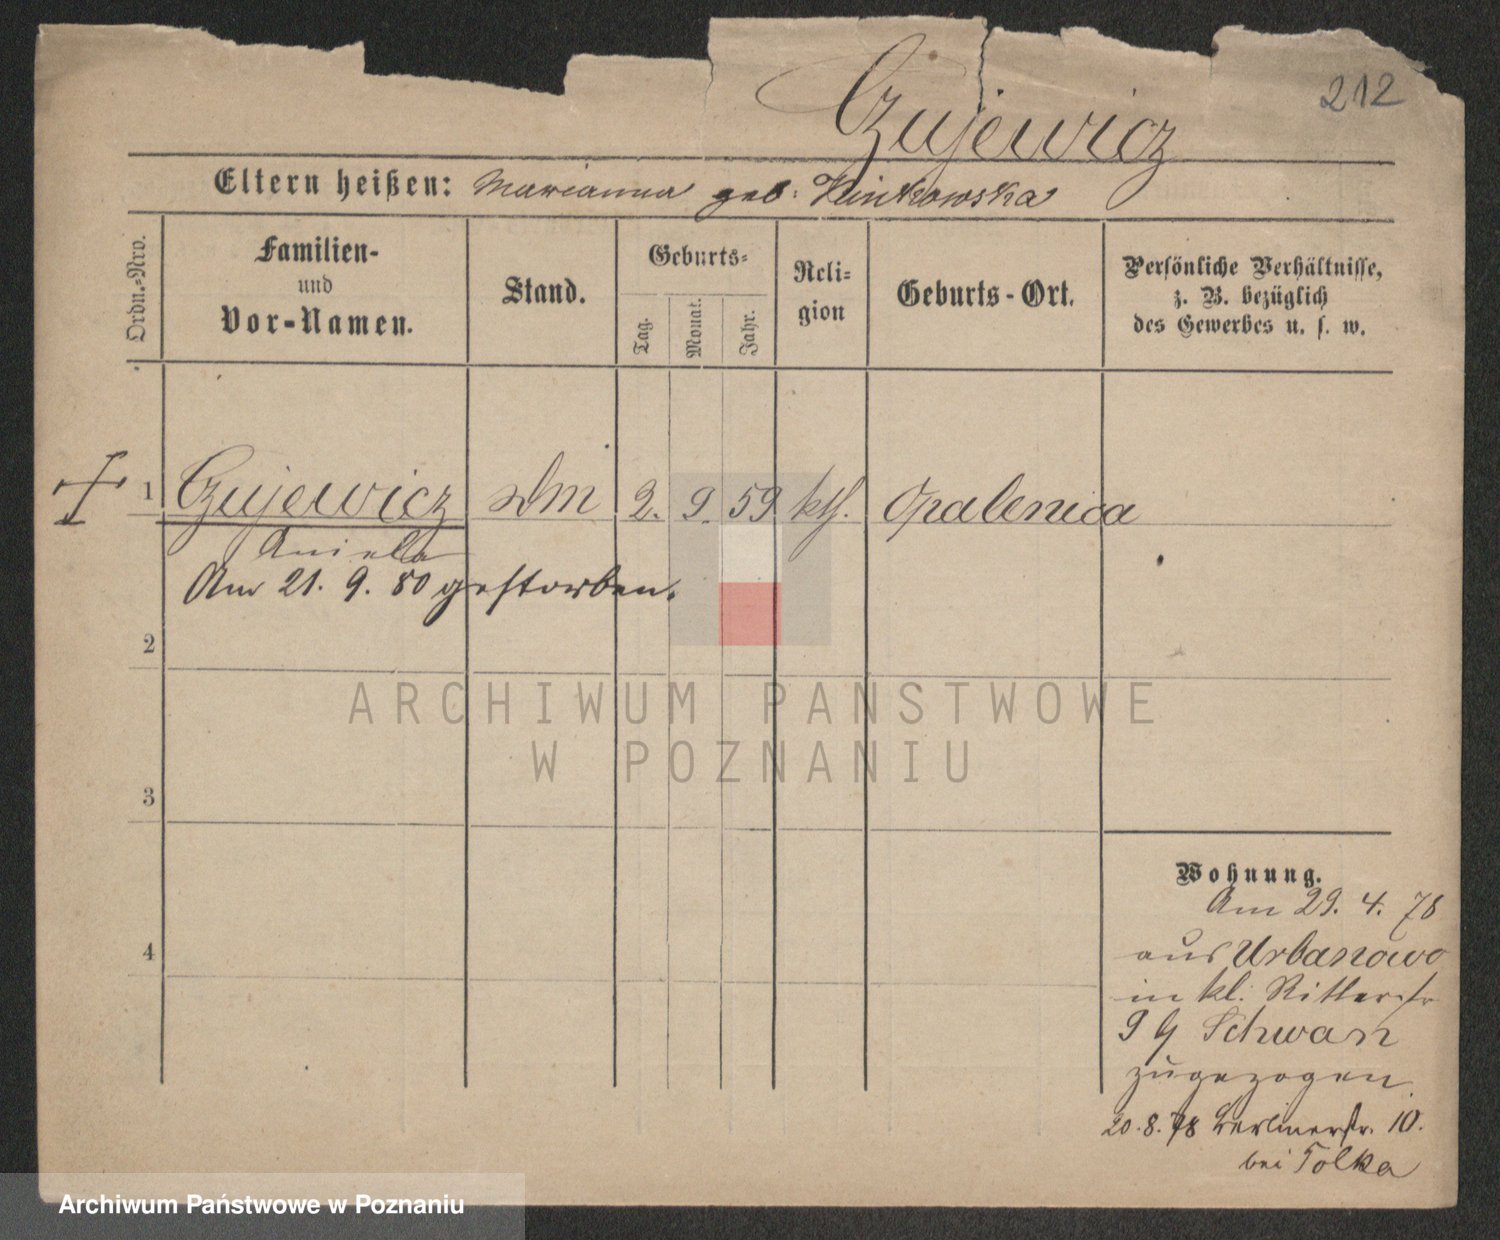 212
Czujewicz
Eltern heißen: Marianna geb:
Ordn.-Nro.
Familien-
und
Vor-Namen.
Stand.
Geburts-
Tag.
Monat.
Jahr.
Reli-
gion
Geburts-Ort.
Persönliche Verhältnisse,
z. B. bezüglich
des Gewerbes u. s. w.
1 Czujewicz 2. 9. 59 kth. Opalenica
Aniela
Am 21. 9. 80 gestorben.
2
3
4
Wohnung.
Am 29. 4. 78
aus Urbanowo
in kl. Ritterstr
9 Schwan
zugezogen.
20. 8. 78 Berlinerstr. 10.
bei Tolka
ARCHIWUM PAŃSTWOWE
W POZNANIU
Archiwum Państwowe w Poznaniu